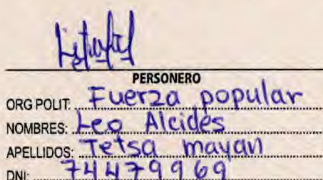 PERSONERO
ORG POLIT: Fuerza popular
NOMBRES: Leo Alcides
APELLIDOS: Tetsa mayan
DNI: 74479969